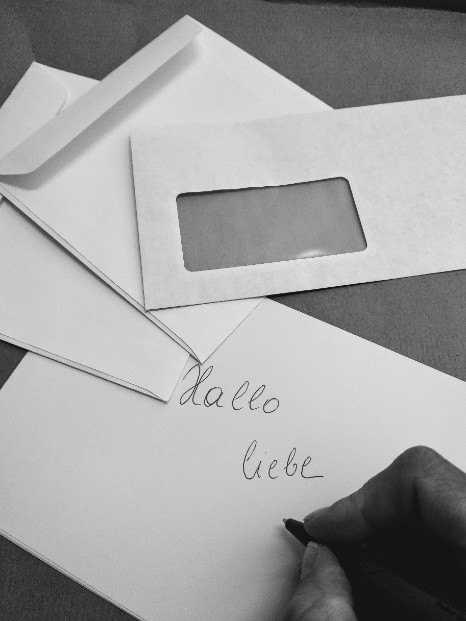 Hallo
liebe